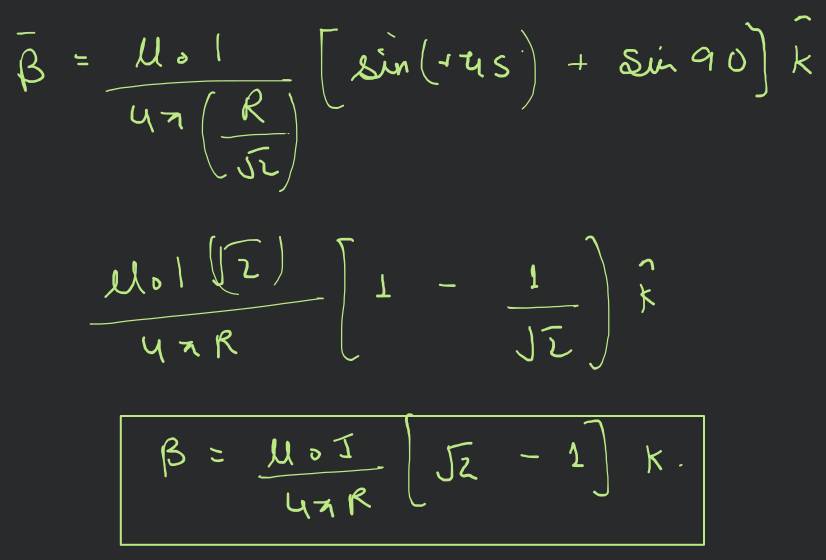 B̄ = μ₀I / 4π(R/√2) [sin(-45) + sin 90] k̂
μ₀I(√2) / 4πR [1 - 1/√2] k̂
B = μ₀I / 4πR [√2 - 1] k.